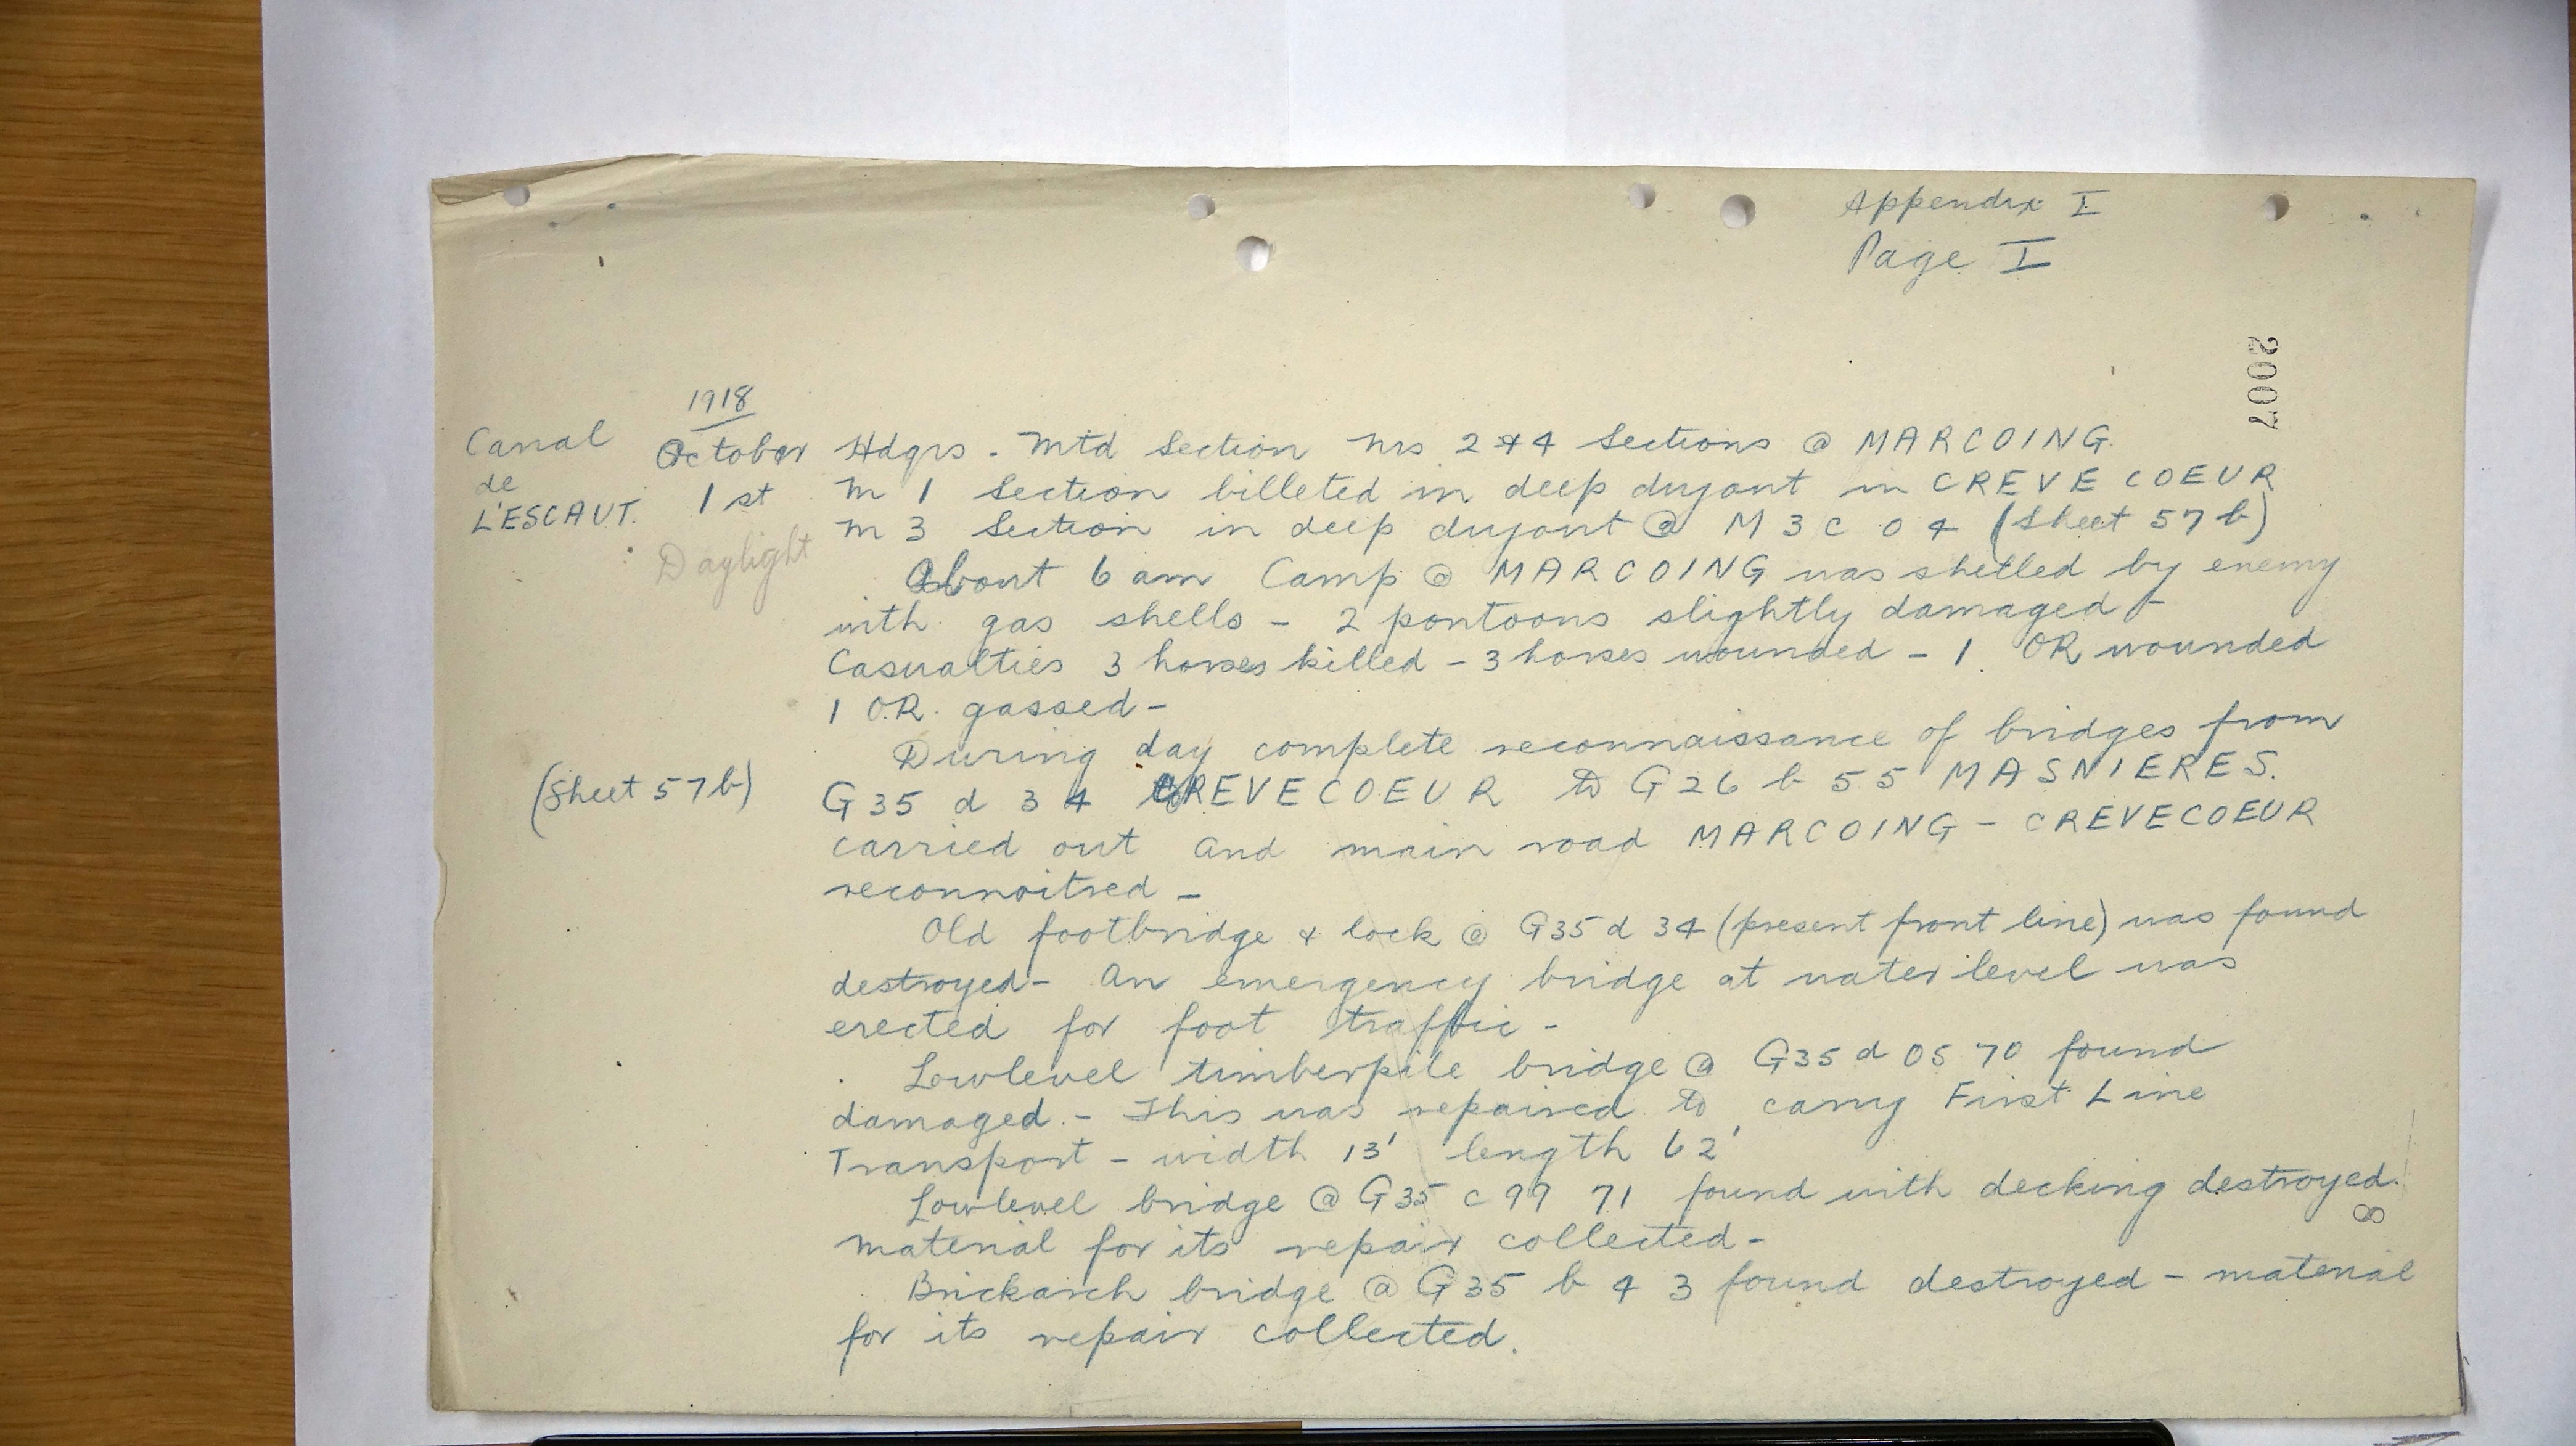 Appendix I
Page I
2007
1918
Canal
de
L'ESCAUT.
October
1st
Daylight
Hdqrs - Mtd Section Nrs 2 & 4 Sections @ MARCOING.
Nr 1 Section billeted in deep dugout in CREVE COEUR
Nr 3 Section in deep dugout @ M 3 c 0 4 (Sheet 57 b)
About 6 am Camp @ MARCOING was shelled by enemy
with gas shells - 2 pontoons slightly damaged -
Casualties 3 horses killed - 3 horses wounded - 1 OR wounded
1 O.R. gassed -
During day complete reconnaissance of bridges from
(Sheet 57 b)
G 35 d 3 4 CREVECOEUR to G 26 b 5 5 MASNIERES.
carried out and main road MARCOING - CREVECOEUR
reconnoitred -
Old footbridge & lock @ G35 d 34 (present front line) was found
destroyed - An emergency bridge at water level was
erected for foot traffic -
Lowlevel timberpile bridge @ G35 d 05 70 found
damaged. - This was repaired to carry First Line
Transport - width 13' length 62'
Lowlevel bridge @ G 35 c 99 71 found with decking destroyed.
material for its repair collected -
Brickarch bridge @ G 35 b 4 3 found destroyed - material
for its repair collected.